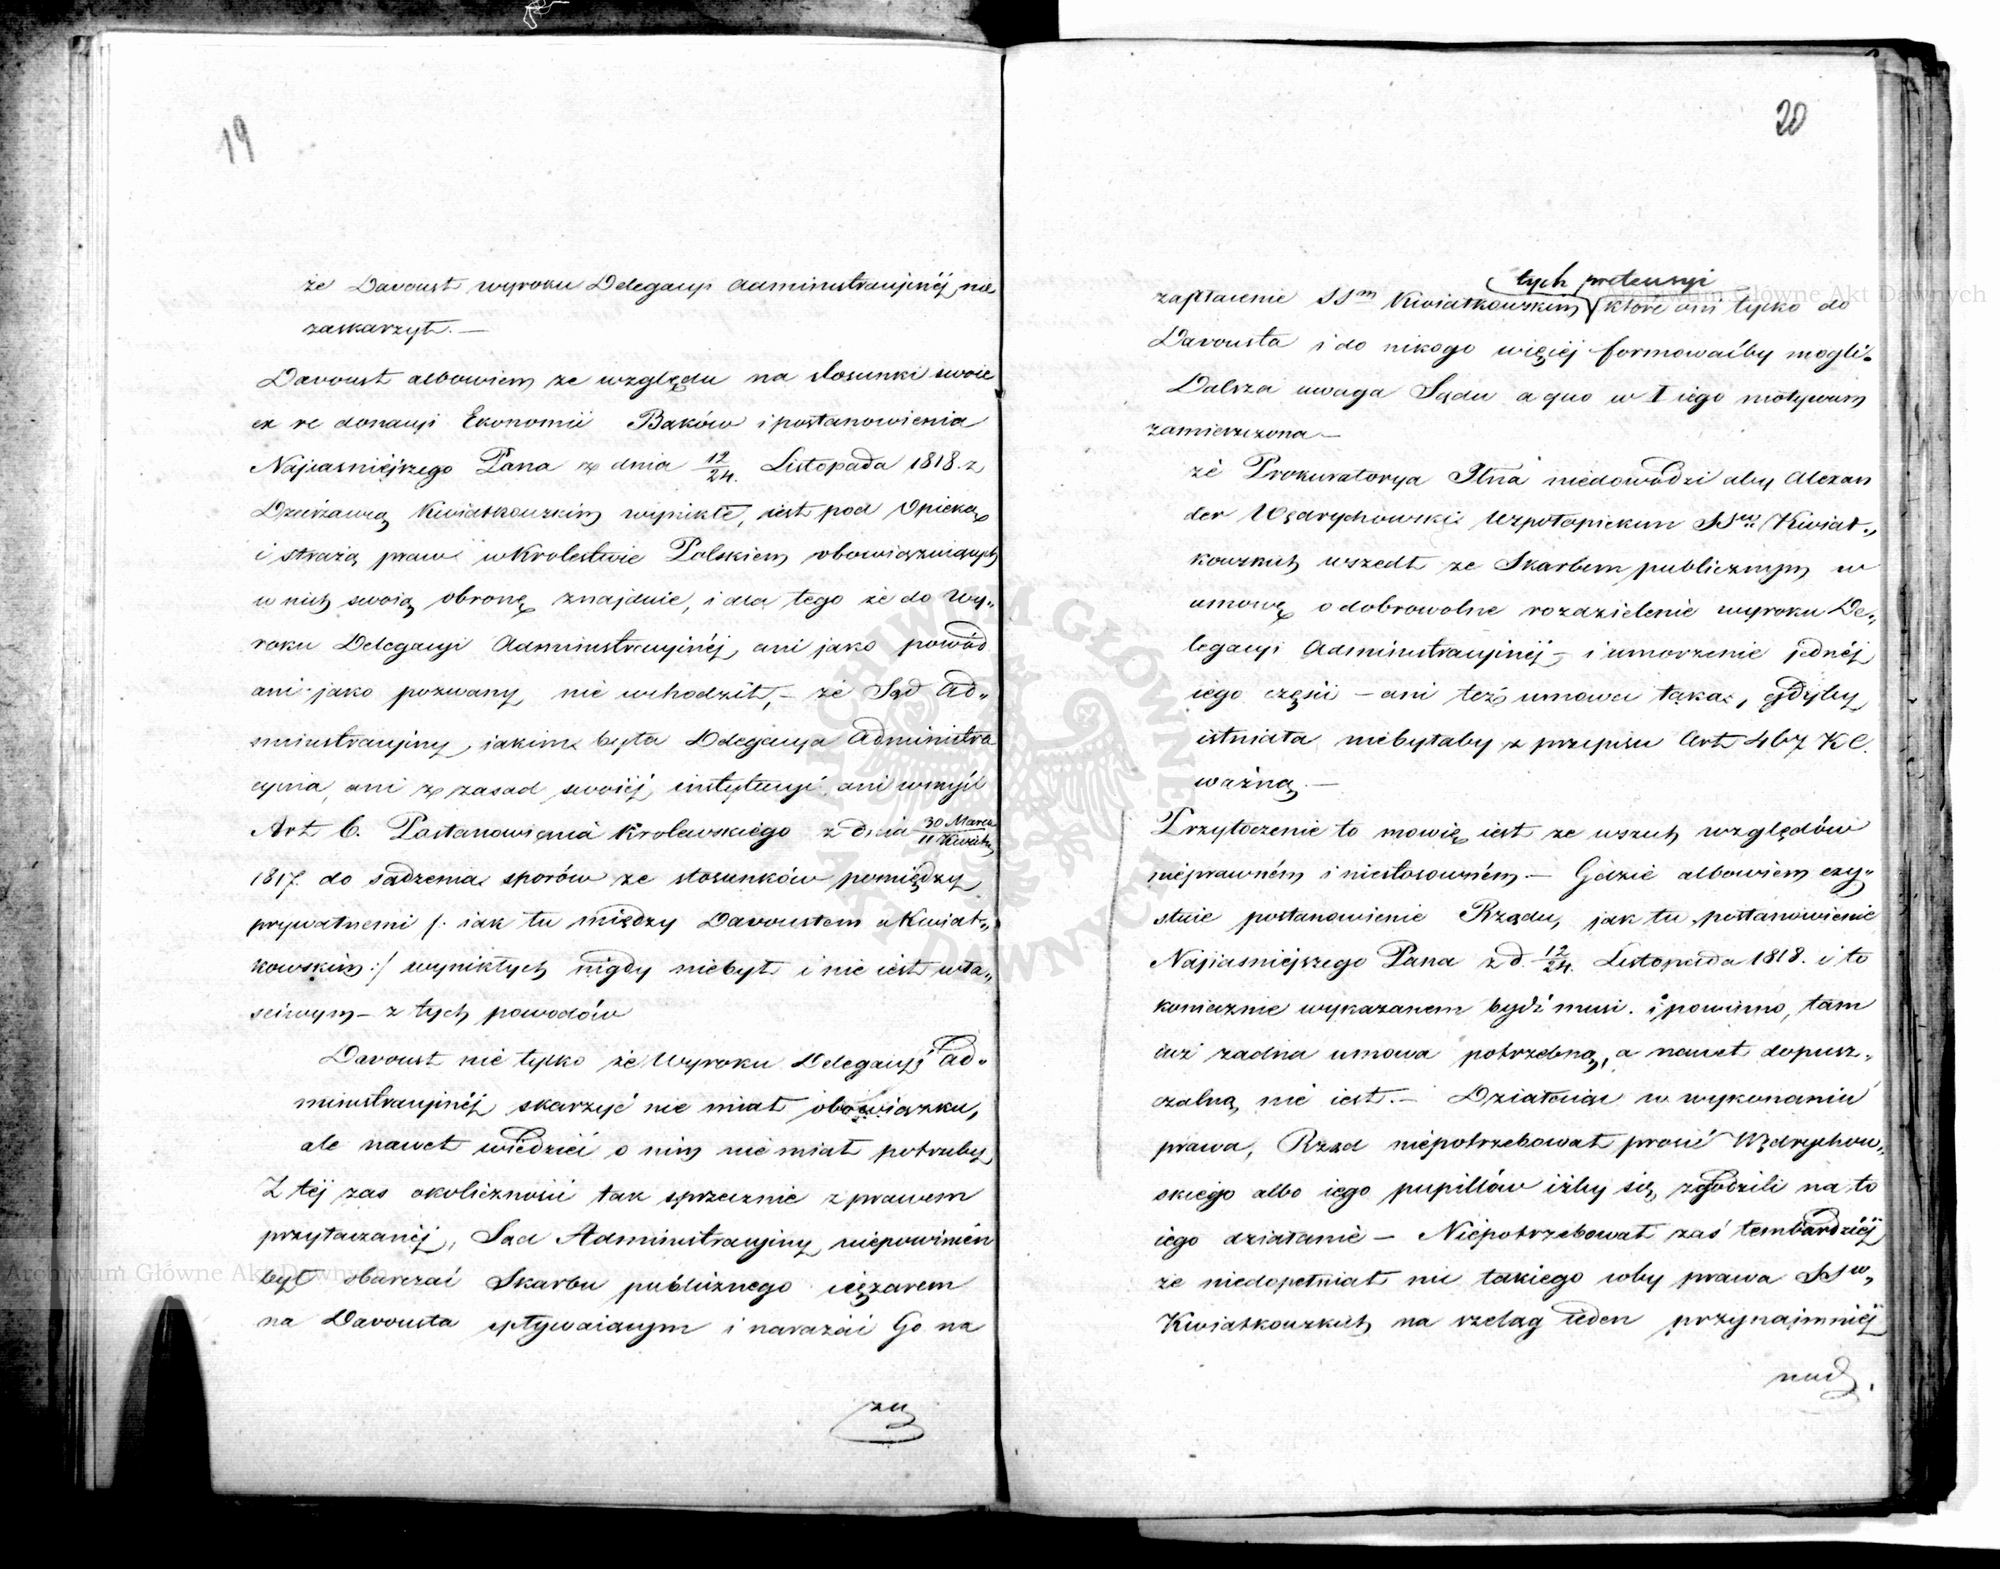 19
że Davoust wyroku Delegacyi Administracyjnéj nie
zaskarzył. —
Davoust albowiem ze względu na stosunki swoie
ex re donacyi Ekonomii Baków i postanowienia
Najiasniéjszego Pana z dnia 12/24. Listopada 1818. z
Dzierżawcą Kwiatkowskim wynikłe, iest pod Opieką
i strażą praw w Krolestwie Polskiem obowiązuiących
w nich swoią obronę znajduie, i dla tego że do Wy„
roku Delegacyi Administracyinéj ani jako powód
ani jako pozwany nie wchodził, – że Sąd Ad„
ministracyjny jakim była Delegacya Administra
cyina, ani z zasad swoiéj instytucyi ani w myśl
Art 6. Postanowienia Krolewskiego z dnia 30 Marca/11 Kwietn
1817. do sądzenia sporów ze stosunków pomiędzy
prywatnemi /: iak tu między Davoustem a Kwiat„
kowskim :/ wynikłych nigdy niebył i nie iest wła„
sciwym – z tych powodów
Davoust nie tylko że Wyroku Delegacyi Ad„
ministracyjnéj skarzyć nie miał obowiązku,
ale nawet wiedzieć o nim nie miał potrzeby
Z téj zas okoliczności tak sprzecznie z prawem
przytaczanéj, Sąd Administracyjny niepowinien
był obarczać Skarbu publicznego ciężarem
na Davousta spływaiącym i narażać Go na
za
20
tych pretensyi
zapłacenie SSm Kwiatkowskim które oni tylko do
Davousta i do nikogo więcéj formowaćby mogli.
Dalsza uwaga Sądu a quo w I iego motywum
zamieszczona —
że Prokuratorya Jlna niedowodzi aby Alexan
der Wędrychowski Wspołopiekun SSw Kwiat„
kowskich wszedł ze Skarbem publicznym w
umowę o dobrowolne rozdzielenie wyroku De„
legacyi Administracyjnéj – i umorzenie jednéj
iego części – ani też umowa taka, gdyby
istniała niebyłaby z przepisu Art 467 KC.
ważną. —
Przytoczenie to mowię iest ze wszech względów
nieprawném i niestosowném. – Gdzie albowiem exy„
stuie postanowienie Rządu, jak tu postanowienie
Najiasniejszego Pana z d. 12/24. Listopada 1818. i to
koniecznie wykazanem bydź musi. i powinno, tam
iuż żadna umowa potrzebną, a nawet dopusz„
czalną nie iest. – Działaiąc w wykonaniu
prawa, Rząd niepotrzebował prosić Wędrychow„
skiego albo iego pupillów iżby się zgodzili na to
iego działanie – Niepotrzebował zaś tembardziéj
że niedopełniał nic takiego coby prawa SSw„
Kwiatkowskich na szeląg ieden przynajmniéj